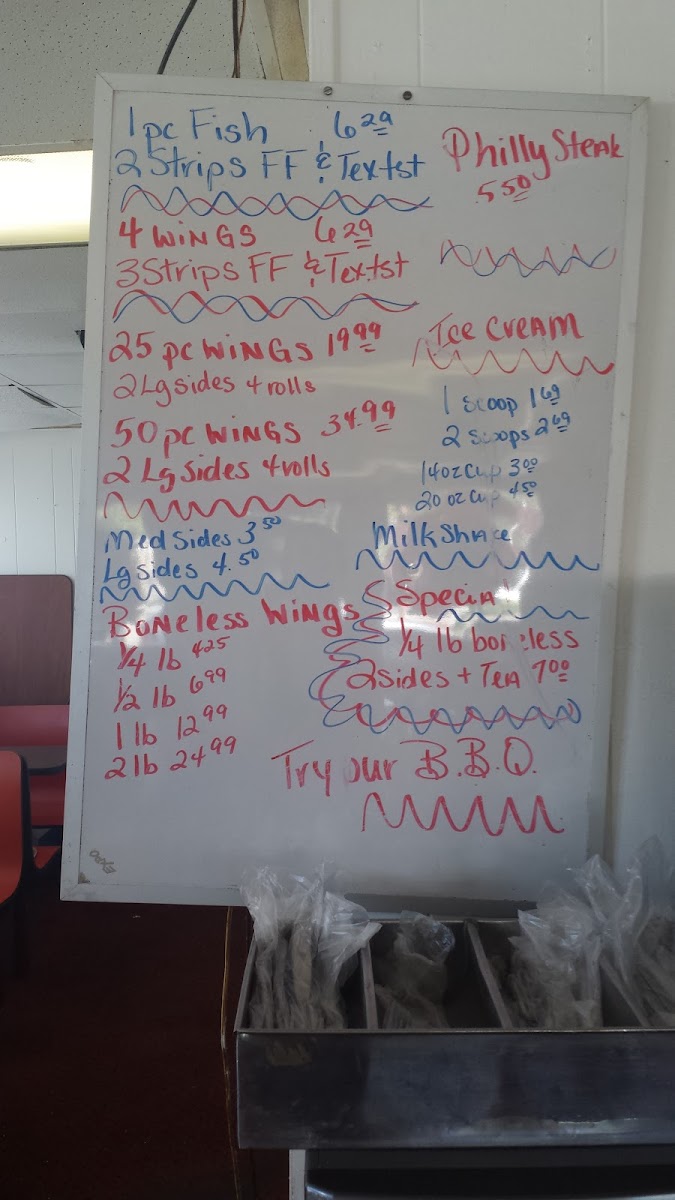 1pc Fish 6 29
2 Strips FF & Tex tst
4 WINGS 6 29
3 Strips FF & Tex.tst
25 pc WINGS 19 99
2 Lg sides 4 rolls
50 pc WINGS 34.99
2 Lg sides 4 rolls
Med Sides 3 50
Lg Sides 4.50
Boneless Wings
1/4 lb 4 25
1/2 lb 6 99
1 lb 12 99
2 lb 24 99
Philly Steak
5 50
Ice Cream
1 scoop 1 69
2 scoops 2 69
14 oz Cup 3 00
20 oz Cup 4 50
Milk Shake
Special
1/4 lb boneless
2 sides + Tea 7 00
Try our B.B.Q.
EXPO